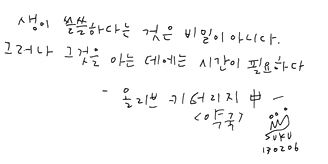 생이 쓸쓸하다는 것은 비밀이 아니다.
그러나 그것을 아는 데에는 시간이 필요하다
- 올리브 키터리지 中 -
SUKU
130206